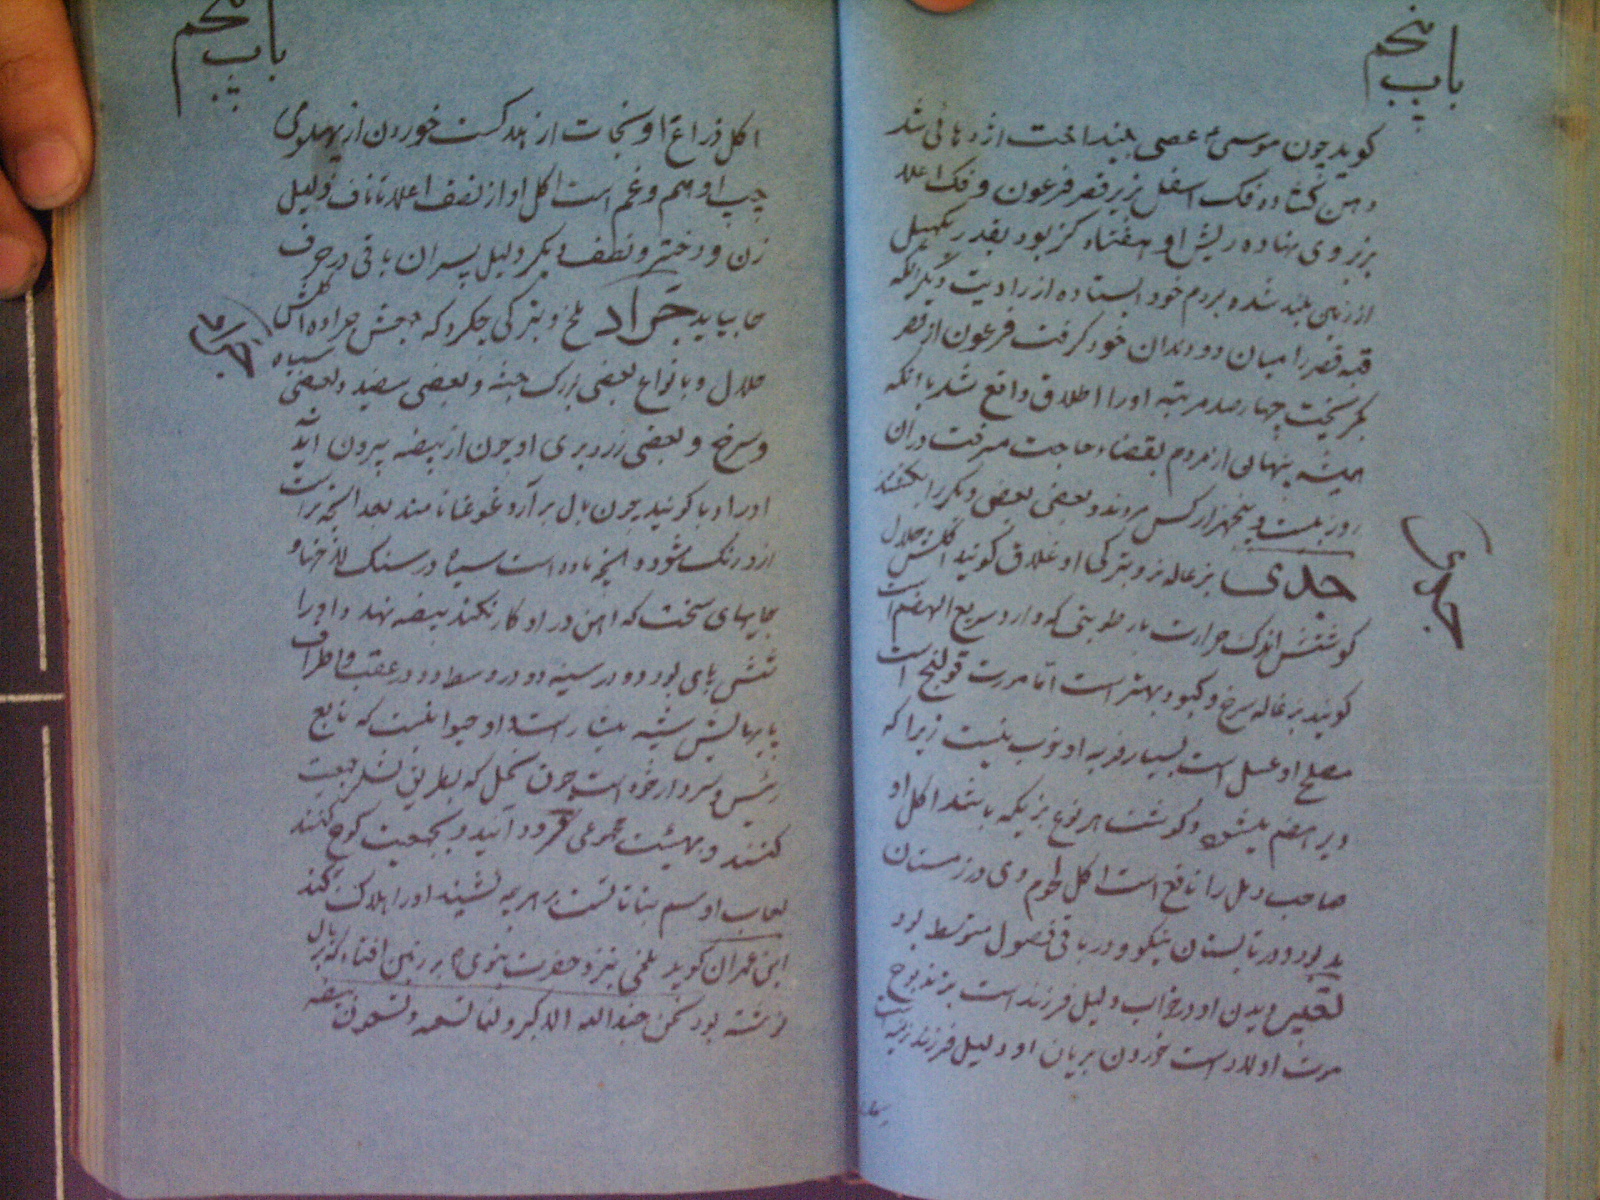 باب پنجم
گوید چون موسیٰ عصی بینداخت اژدهائی شد
دهن گشاده فک اسفل زیر قصر فرعون و فک اعلا
بر روی نهاده ریش او هفتاد گز بود بقدر یکمیل
از زمین بلند شده بردم خود ایستاده از روایت دیگر آنکه
قبه قصر را میان دو دندان خود گرفت فرعون از قصر
بگریخت چهارصد مرتبه او را اطلاق واقع شد با آنکه
همیشه پنهانی از مردم بقضاء حاجت میرفت در آن
روز بیست و پنجهزار کس مردند و بعضی بعضی دیگر را
جدی
جدی بزغاله نر و بترکی اوغلاق گویند اکلش حلال
گوشتش اندک حرارت با رطوبتی که دارد سریع الهضم است
گویند بزغاله سرخ و کبود بهتر است اما مورث قولنج است
مصلح او عسل است بسیار فربه او خوب نیست زیرا که
دیر هضم میشود و گوشت هر نوع بزیکه باشد اکل او
صاحب دمل را نافع است اکل لحوم وی در زمستان
بد بود و در تابستان نیکو و در باقی فصول متوسط بود
تعبیر دیدن او در خواب دلیل فرزند است بز مذبوح
موت اولاد است خوردن بریان او دلیل فرزند
باب پنجم
اکل ذراع او نجات از خوردن از پهلوی
چپ او هم و غم است اکل او از نصف اعلا تا ناف دلیل
زن و دختر و نصف دیگر دلیل پسران باقی در حرف
جراد
حا بیاید جراد ملخ و بترکی چکرکه جمعش جراده اکلش
حلال و با نواع بعضی بزرگ جثه و بعضی سفید و بعضی سیاه
و سرخ و بعضی زرد بری او چون از بیضه بیرون آید
او را دبا گویند چون بال برآرد غوغا نامند بعد آنچه نر است
زرد رنگ میشود و آنچه ماده است سیاه در سنگ
جایهای سخت که آهن در او کار نکند بیضه نهد و او را
شش پای بود دو در سینه دو در وسط دو در عقب و اطراف
پایهایش شبیه است او حیوانیست که تابع
رئیس و سردار خود است چون نحل که بطریق لشکر جمعیت
کنند و بهیئت مجموعی فرود آیند و بجمعیت کوچ کنند
لعاب او سم نباتات است بر هر چه نشیند او را هلاک کند
ابن عمران گوید ملخی نزد حضرت نبوی بر زمین افتاد که بر بال
نوشته بود نحن جند الله الاکبر و لنا تسعه و تسعون بیضه